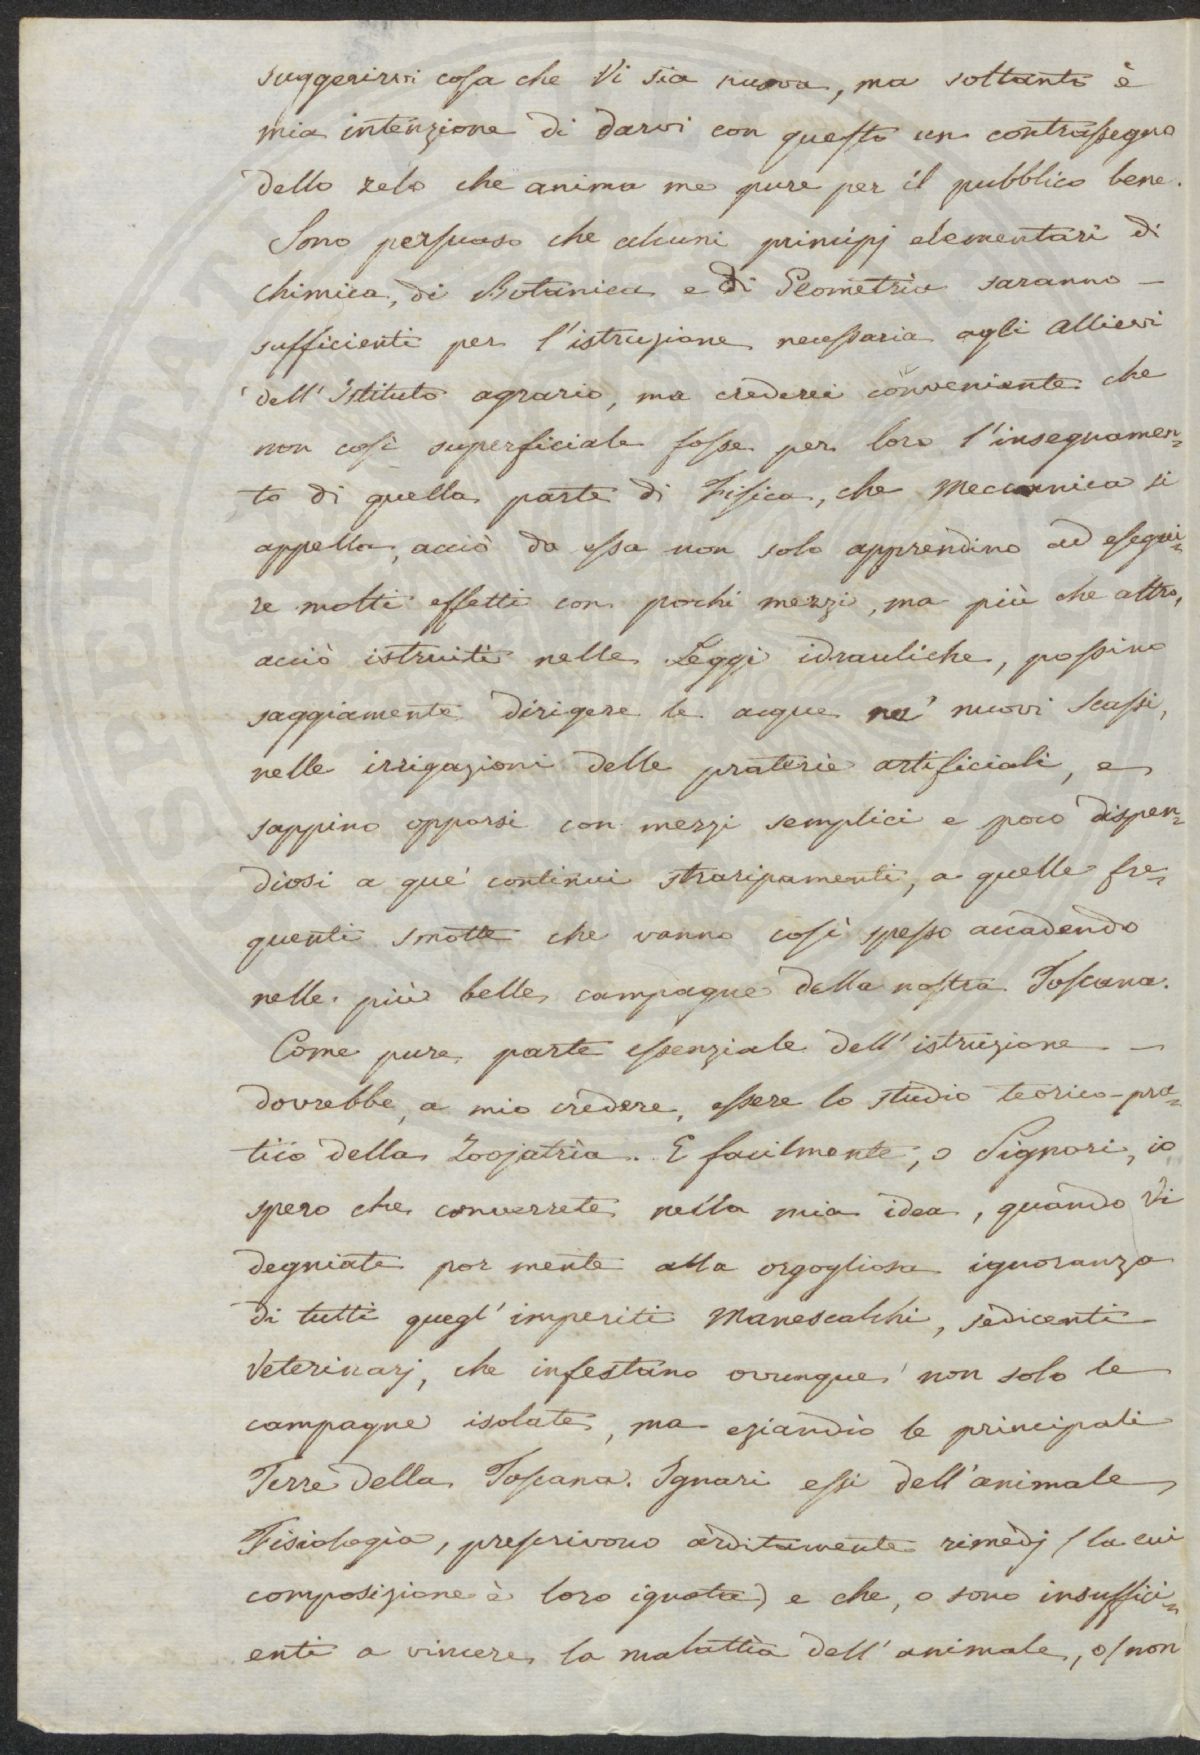 suggerirvi cosa che Vi sia nuova, ma soltanto è
mia intenzione di darvi con questo un contrassegno
dello zelo che anima me pure per il pubblico bene.
Sono persuaso che alcuni principj elementari di
Chimica, di Botanica e di Geometria saranno —
sufficienti per l'istruzione necessaria agli Allievi
dell'Istituto agrario, ma crederei conveniente che
non così superficiale fosse per loro l'insegnamen=
to di quella parte di Fisica, che Meccanica si
appella, acciò da essa non solo apprendino ad esegui=
re molti effetti con pochi mezzi, ma più che altro,
acciò istruiti nelle Leggi idrauliche, possino
saggiamente dirigere le acque ne' nuovi scassi,
nelle irrigazioni delle praterie artificiali, e
sappino opporsi con mezzi semplici e poco dispen=
diosi a que' continui straripamenti, a quelle fre=
quenti smotte che vanno così spesso accadendo
nelle più belle campagne della nostra Toscana.
Come pure parte essenziale dell'istruzione —
dovrebbe, a mio credere, essere lo studio teorico-pra=
tico della Zoojatria. E facilmente, o Signori, io
spero che converrete nella mia idea, quando Vi
degniate por mente alla orgogliosa ignoranza
di tutti quegl'imperiti Manescalchi, sedicenti
Veterinarj, che infestano ovunque non solo le
campagne isolate, ma eziandio le principali
Terre della Toscana. Ignari essi dell'animale
Fisiologia, prescrivono arditamente rimedj (la cui
composizione è loro ignota) e che, o sono insuffici=
enti a vincere la malattia dell'animale, o/non